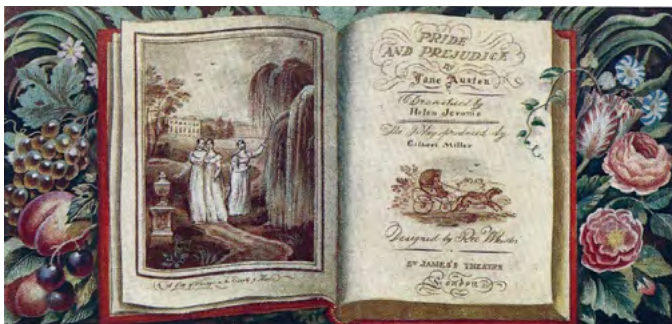 PRIDE
AND PREJUDICE
By
Jane Austen
Dramatised by
Helen Jerome
The Play produced by
Gilbert Miller
Designed by Rex Whistler
ST JAMES'S THEATRE
London